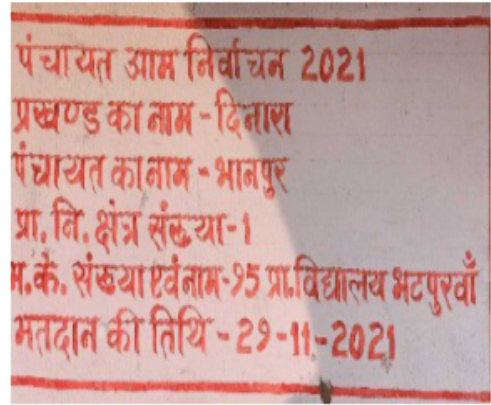 पंचायत आम निर्वाचन 2021
प्रखण्ड का नाम - दिनारा
पंचायत का नाम - भानपुर
प्रा. नि. क्षेत्र संख्या-1
म.के. संख्या एवं नाम-95 प्रा.विद्यालय भटपुरवाँ
मतदान की तिथि - 29-11-2021